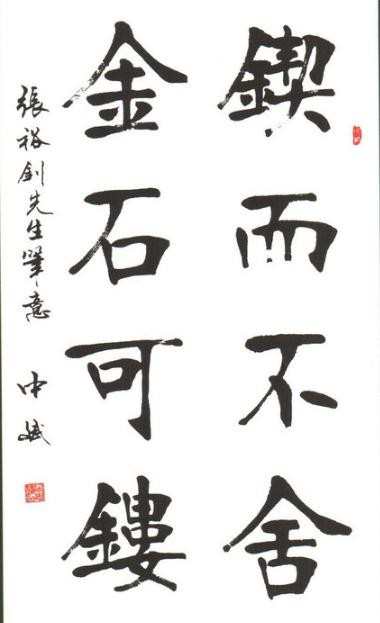 鍥而不舍
金石可鏤
張裕釗先生筆意
中斌